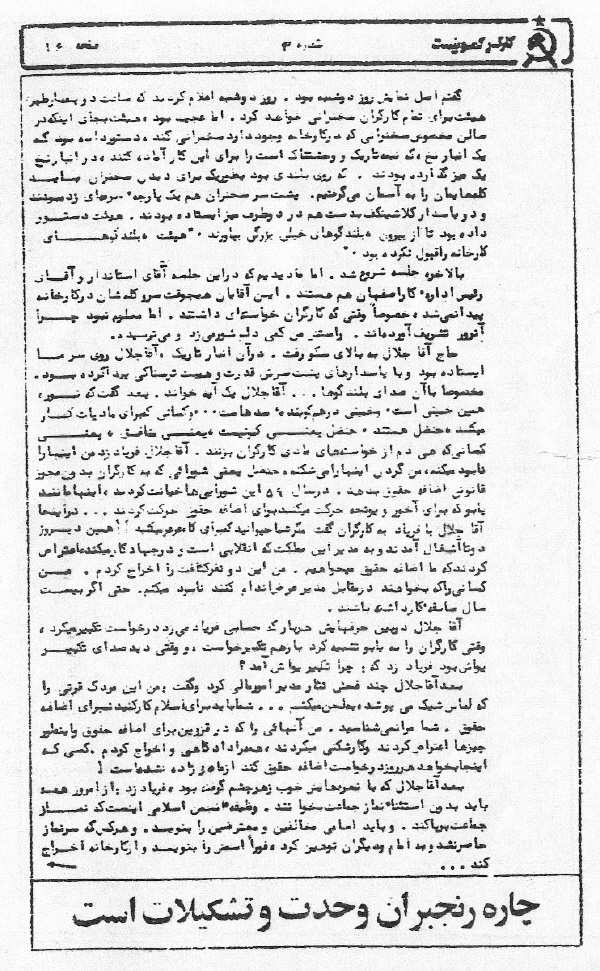 کارگر کمونیست
شماره ۳
صفحه ۱۶
گفتم اصل نمایش روز دوشنبه بود . روز دوشنبه اعلام کردند که ساعت دو بعدازظهر
هیئت برای تمام کارگران سخنرانی خواهد کرد . اما عجیب بود ، هیئت بجای اینکه در
سالن مخصوص سخنرانی که در کارخانه وجود دارد سخنرانی کند ، دستور داده بود که
یک انبار نخ ، که نیمه تاریک و وحشتناک است را برای این کار آماده کنند ، در انبار نخ
یک میز گذارده بودند . که روی بلندی بود بطوریکه برای دیدن سخنران میباید
کله‌هایمان را به آسمان می‌گرفتیم . پشت سر سخنران هم یک پارچه زده بودند
و دو پاسدار کلاشینکف بدست هم در دو طرف میز ایستاده بودند . هیئت دستور
داده بود تا از بیرون ، بلندگوهای خیلی بزرگی بیاورند . " هیئت ، بلندگوهای
کارخانه را قبول نکرده بود . "
بالاخره جلسه شروع شد . اما ما دیدیم که در این جلسه آقای استاندار و آقای
رئیس اداره کار اصفهان هم هستند . این آقایان هیچوقت سر و کله شان در کارخانه
پیدا نمی‌شد ، خصوصاً وقتی که کارگران خواسته‌ای داشتند . اما معلوم نبود چرا
آنروز تشریف آورده‌اند . راستش من کمی دلم شور می‌زد و می‌ترسیدم .
حاج آقا جلال به بالای سکو رفت . در آن انبار تاریک ، آقا جلال روی سر ما
ایستاده بود و با پاسدارهای پشت سرش قدرت و هیبت ترسناکی پیدا کرده بود .
مخصوصا با آن صدای بلندگوها ... آقا جلال یک آیه خواند . بعد گفت که
همین خمینی است و خمینی درهم کوبنده ... و کسانی که برای مادیات کار
میکنند ، هستند . یعنی کمونیست ، یعنی منافق ، یعنی
کسانی که هی دم از خواست‌های مادی کارگران بزنند . آقا جلال فریاد زد من اینها را
نابود میکنم ، من گردن اینها را می‌شکنم ، یعنی شورائی که به کارگران بدون مجوز
قانونی اضافه حقوق بدهد . در سال ۵۹ این شورایی‌ها خیانت کردند ، اینها مانند
یابو که برای آخور و یونجه حرکت میکند برای اضافه حقوق حرکت کردند ... در اینجا
آقا جلال با فریاد به کارگران گفت مگر شما حیوانید که برای کاه عرعر میکنید !! همین دیروز
دو تا آشغال آمدند و به مدیر این مملکت که انقلابی است و در جهاد کار میکند ، اعتراض
کردند که ما اضافه حقوق میخواهیم . من این دو نفر کثافت را اخراج کردم . من
کسانی را که بخواهند در مقابل مدیر عرض اندام کنند نابود میکنم . حتی اگر بیست
سال سابقه کار داشته باشند .
آقا جلال در بین حرفهایش هر بار که حسابی فریاد می‌زد درخواست تکبیر میکرد ،
وقتی کارگران را به یابو تشبیه کرد باز هم تکبیر خواست ، و وقتی دید صدای تکبیر
یواش بود فریاد زد که : چرا تکبیر یواش آمد ؟
بعد آقا جلال چند فحش نثار مدیر امور مالی کرد و گفت : من این مردک قرتی را
که لباس شیک می پوشد ، میکشم ... شما باید برای اسلام کار کنید نه برای اضافه
حقوق . شما مرا نمی‌شناسید . من آنهائی را که در قزوین برای اضافه حقوق و اینطور
چیزها اعتراض کردند و کارشکنی میکردند ، همه را دادگاهی و اخراج کردم . کسی که
اینجا بخواهد هر روز درخواست اضافه حقوق کند از مادر زاده نشده است !
بعد آقا جلال که با نعره‌هایش خوب زهر چشم گرفته بود ، فریاد زد : از امروز همه
باید بدون استثناء نماز جماعت بخوانند . وظیفه انجمن اسلامی اینست که نماز
جماعت برپا کند . و باید اسامی مخالفین و معترضین را بنویسد . و هر کس که سر نماز
حاضر نشد و به امام و دیگران توهین کرد ، فوراً اسمش را بنویسد و از کارخانه اخراج
کند ...
چاره رنجبران وحدت و تشکیلات است